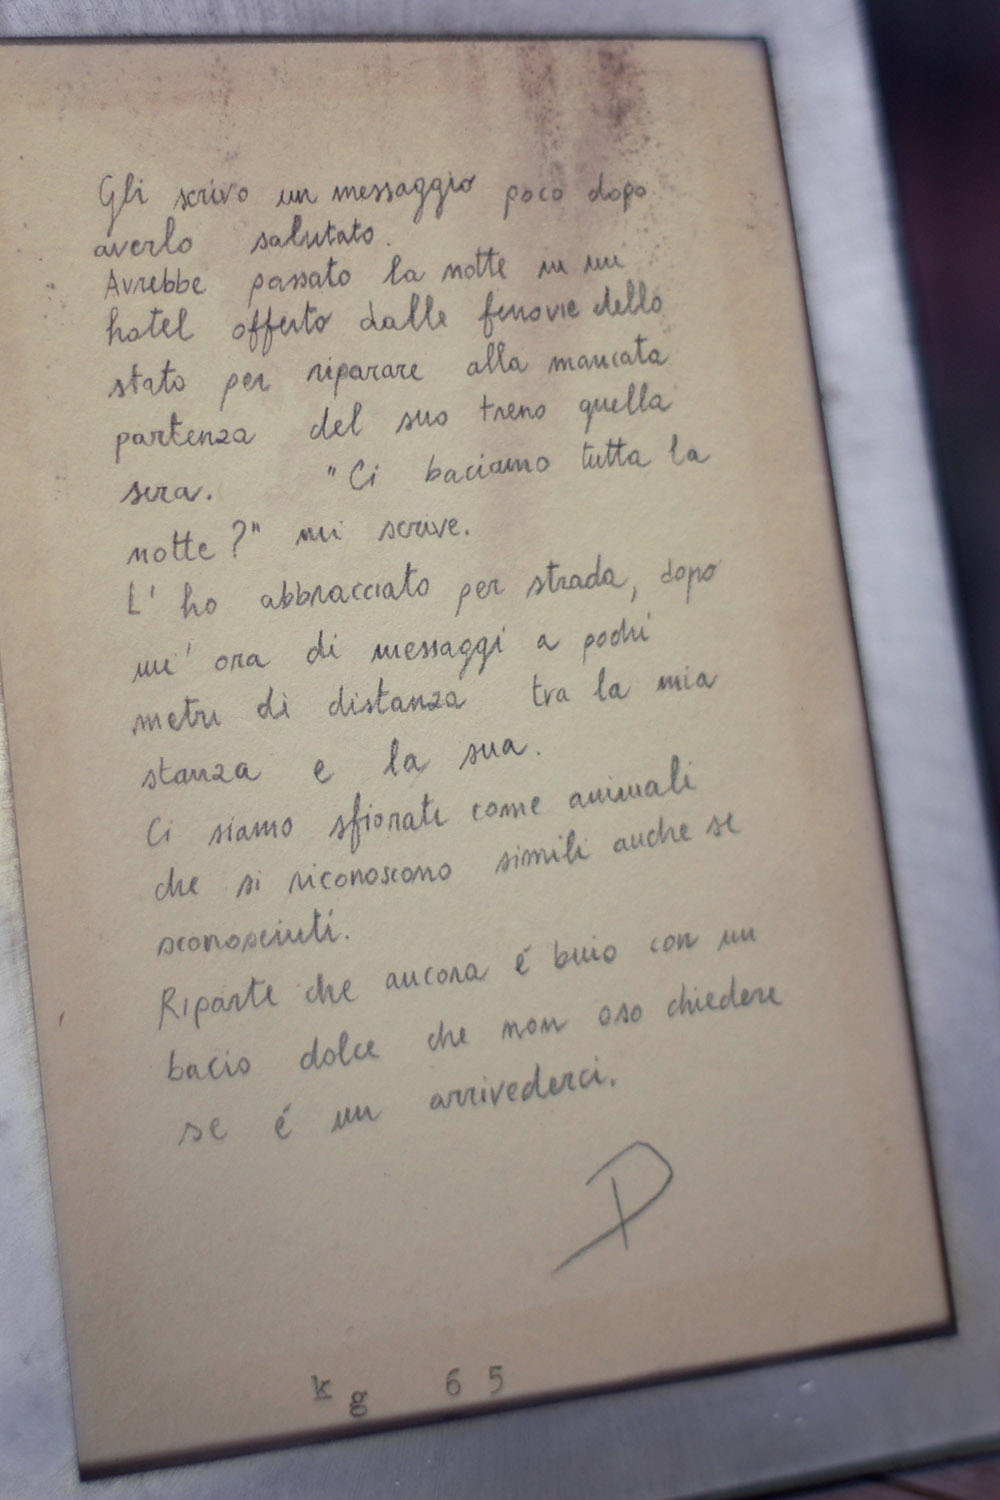 Gli scrivo un messaggio poco dopo
averlo salutato.
Avrebbe passato la notte in un
hotel offerto dalle ferrovie dello
stato per riparare alla mancata
partenza del suo treno quella
sera. "Ci baciamo tutta la
notte?" mi scrive.
L'ho abbracciato per strada, dopo
un'ora di messaggi a pochi
metri di distanza tra la mia
stanza e la sua.
Ci siamo sfiorati come animali
che si riconoscono simili anche se
sconosciuti.
Riparte che ancora é buio con un
bacio dolce che non oso chiedere
se é un arrivederci.
D
kg 65